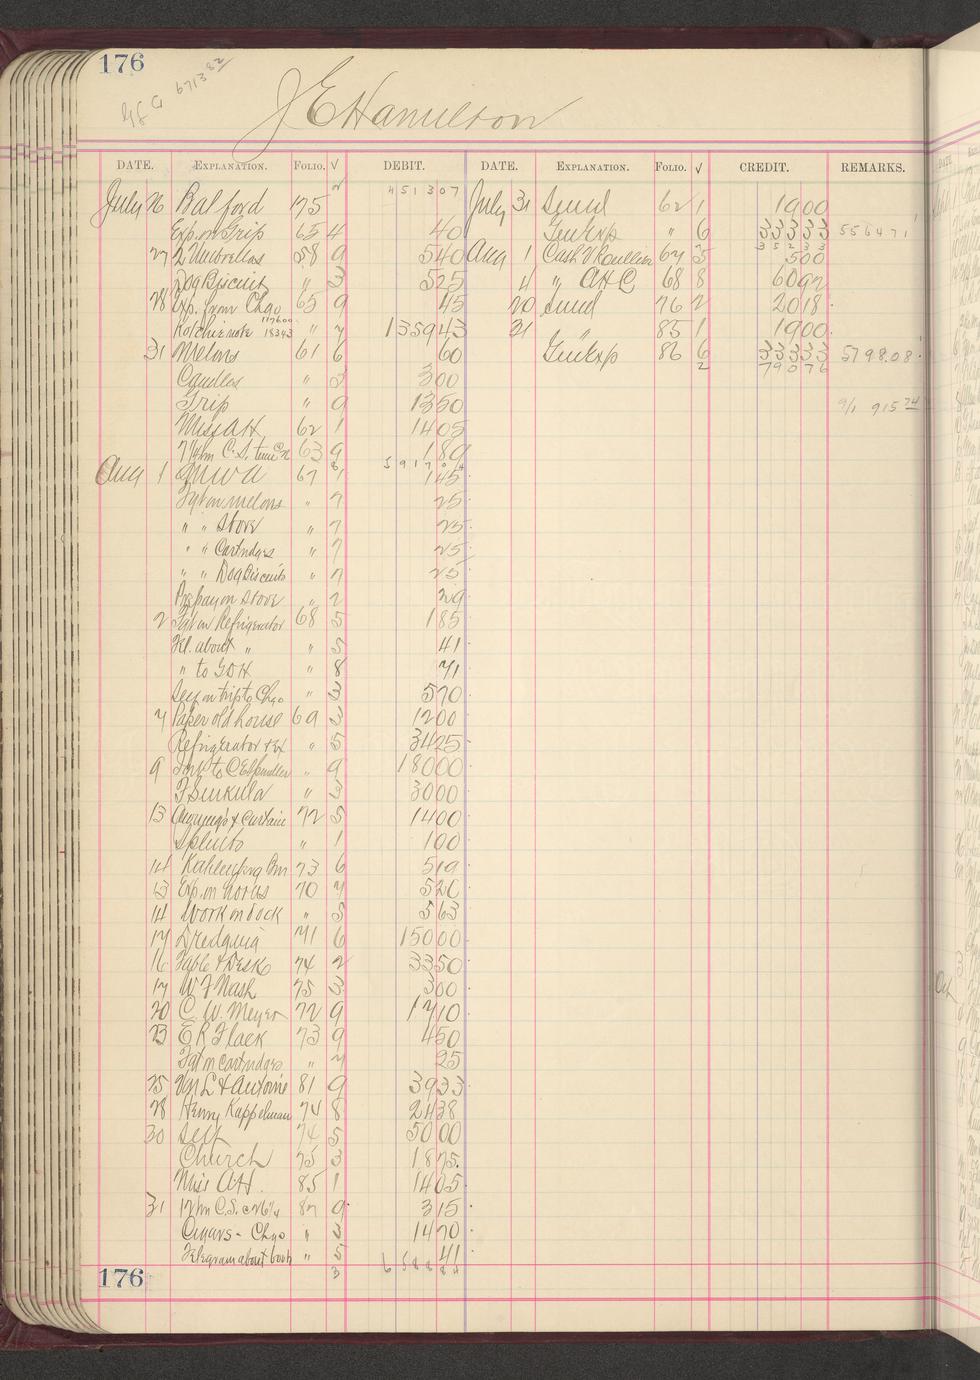 176
671382
J E Hamilton
DATE. EXPLANATION. FOLIO. √ DEBIT. DATE. EXPLANATION. FOLIO. √ CREDIT. REMARKS.
451307
July 26 Balford 175 July 31 Sund 62 1 1900
Exp. on Trip 65 4 40 Gen Exp " 6 33333 556471
35233
27 2 Umbrellas 58 9 540 Aug 1 Cash 67 5 500
Dog Biscuit " 3 525 4 " AHC 68 8 6092
28 Exp. from Chgo 65 9 45 20 Sund 76 2 2018
117600
Kotche note 18343 " 7 135943 31 " 85 1 1900
31 Melons 61 6 60 Gen Exp 86 6 33333 5798.08
2 79076
Candles " 3 300
Trip " 9 1350 9/1 915 74
Miss AH 62 1 1405
7 1/4 hm C.S. time 63 9 189
Aug 1 67 1 145
Frt on melons " 7 25
" " Stove " 7 25
" " Cartridges " 7 25
" " Dog Biscuits " 7 25
Prepay on Stove " 2 29
2 Frt on Refrigerator 68 5 185
Tel. about " " 5 41
" to GDH " 8 71
Self on trip to Chgo " 3 570
7 Paper old house 69 3 1200
Refrigerator + Ex " 5 3425
9 to C E " 9 18000
F Sinkula " 3 3000
13 Awnings & Curtain 72 5 1400
Splints " 1 100
14 Kahlenberg Bro 73 6 519
13 Exp. on Horses 70 7 520
14 Work on Dock " 5 563
17 Dredging 71 6 15000
16 Table & Desk 74 2 3350
17 W F Nash 75 3 300
20 C. W. Meyer 72 9 1710
23 E R Flack 73 9 450
Frt on Cartridges " 7 25
25 Von L & Antoine 81 9 3933
28 Henry Kappelman 74 8 2438
30 Self 74 5 5000
Church 75 3 1875
Miss A.H. 85 1 1405
31 12 hm C.S. 87 9 315
Cigars - Chgo " 3 1470
Telegram about book " 5 41
3 658884
176